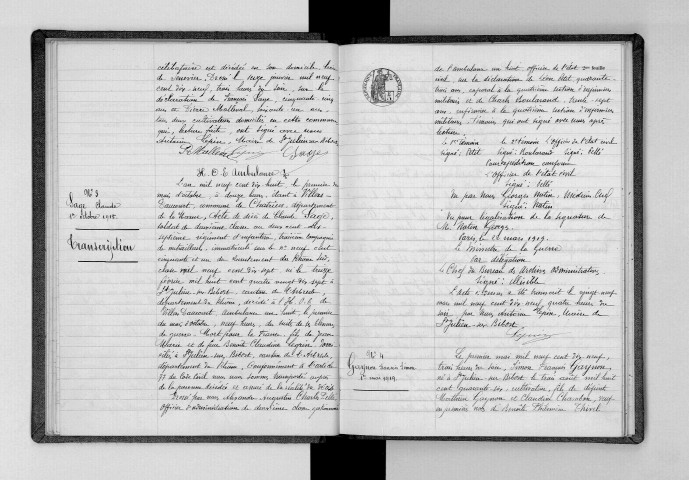 célibataire est décédé en son domicile
le seize janvier mil neuf
cent dix neuf, trois heures du soir, sur la
déclaration de François Sage, cinquante cinq
ans et Pierre Mallaval
ans tous deux cultivateurs domiciliés en cette commune
qui, lecture faite, ont signé avec nous
Antoine Lépine, Maire de St Julien sur Bibost
N° 3
Sage Claude
1er octobre 1918
Transcription
H. O. E. Ambulance
L'an mil neuf cent dix huit, le premier du
mois d'octobre, à douze heures, étant à Villers
Daucourt, commune de département
de la Marne, Acte de décès de Claude Sage,
soldat de deuxième classe au deux cent dix
septième régiment d'infanterie, treizième compagnie
de mitrailleuses, immatriculé sous le n° neuf cent
cinquante et un du recrutement du Rhône Sud,
classe mil neuf cent dix sept, né le douze
février mil huit cent quatre vingt dix sept à
St Julien sur Bibost, canton de l'Arbresle
département du Rhône, décédé à l'H. O. E. de
Villers Daucourt, ambulance un huit, le premier
du mois d'octobre, neuf heures, des suites de
de guerre. Mort pour la France, fils de Jean
Marie et de feu Benoîte Claudine
à St Julien sur Bibost, canton de l'Arbresle,
département du Rhône. Conformément à l'article
77 du Code civil nous nous sommes transporté auprès
de la personne décédée et assuré de la réalité du décès.
Dressé par nous Alexandre Augustin Charles Pellé
officier d'administration de deuxième classe gestionnaire
de l'ambulance un huit, officier de l'état
civil, sur la déclaration de Léon Petit quarante
trois ans, caporal à la quatrième section d'infirmiers
militaires et de Charles Boularand, trente sept
ans, infirmier à la quatrième section d'infirmiers
militaires. Témoins qui ont signé avec nous après
lecture.
1er témoin 2e témoin L'officier de l'état civil
Signé: Petit Signé: Boularand Signé: Pellé
Pour expédition conforme
L'officier de l'état civil
Signé: Pellé
Vu par nous Georges Martin Médecin Chef
Signé: Martin
Vu pour légalisation de la signature de
Mr Martin Georges.
Paris, le mars 1919.
Le Ministre de la Guerre
Par délégation
Le Chef du Bureau des Archives Administratives
Signé: illisible
L'acte a été transcrit le vingt neuf
mars mil neuf cent dix neuf, quatre heures du
soir, par nous Antoine Lépine, Maire de
St Julien sur Bibost.
Lépine
N° 4
Gargnon
1er mai 1919
Le premier mai mil neuf cent dix neuf,
trois heures du soir, Simon François Gargnon,
né à St Julien sur Bibost le trois août mil huit
cent quarante six, cultivateur, fils de défunts
Mathieu Gargnon et Claudine Chambon, veuf
en premières noces de Benoîte Philomène